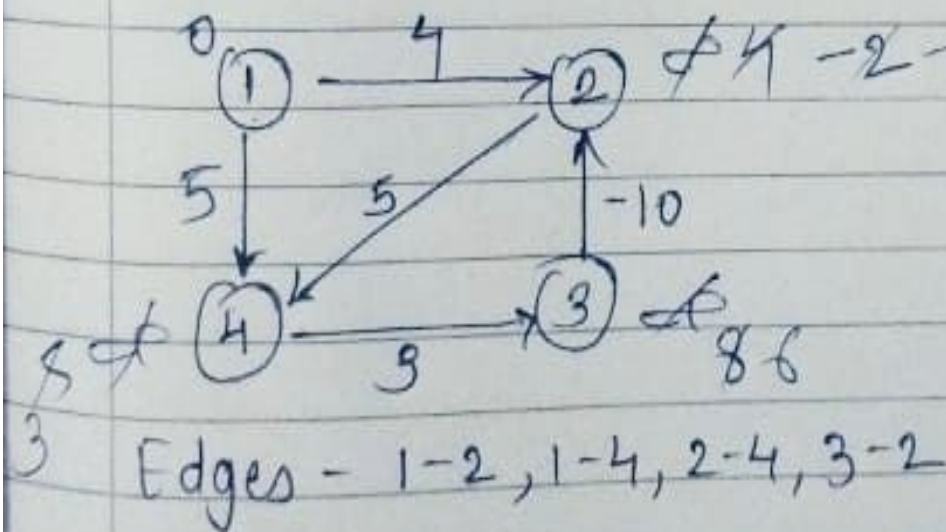 0
1 4 2 ∞ 4 -2 -
5 5 -10
5 ∞ 4 3 3 ∞
8 6
3 Edges - 1-2, 1-4, 2-4, 3-2